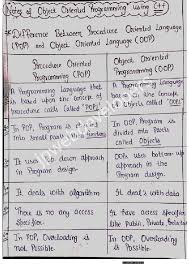 Notes of Object Oriented Programming using C++
Difference Between Procedure Oriented Language
(POP) and Object Oriented Language (OOP)
Procedure Oriented
Programming (POP)
A Programming Language that
is based upon the concept
procedure calls called "POP"
In POP, Program is
into small parts functions
It uses down approach
in Program design.
It deals with algorithm
There is no any access
Specifier.
In POP, Overloading is
not Possible.
Object Oriented
Programming (OOP)
A Programming language
that is based upon the
concept of
In OOP, Program is
divided into parts
called Objects
OOP uses bottom up
approach in
Program design.
It deals with data
It have access specifier
like Public, Private,
In OOP, Overloading
is Possible.